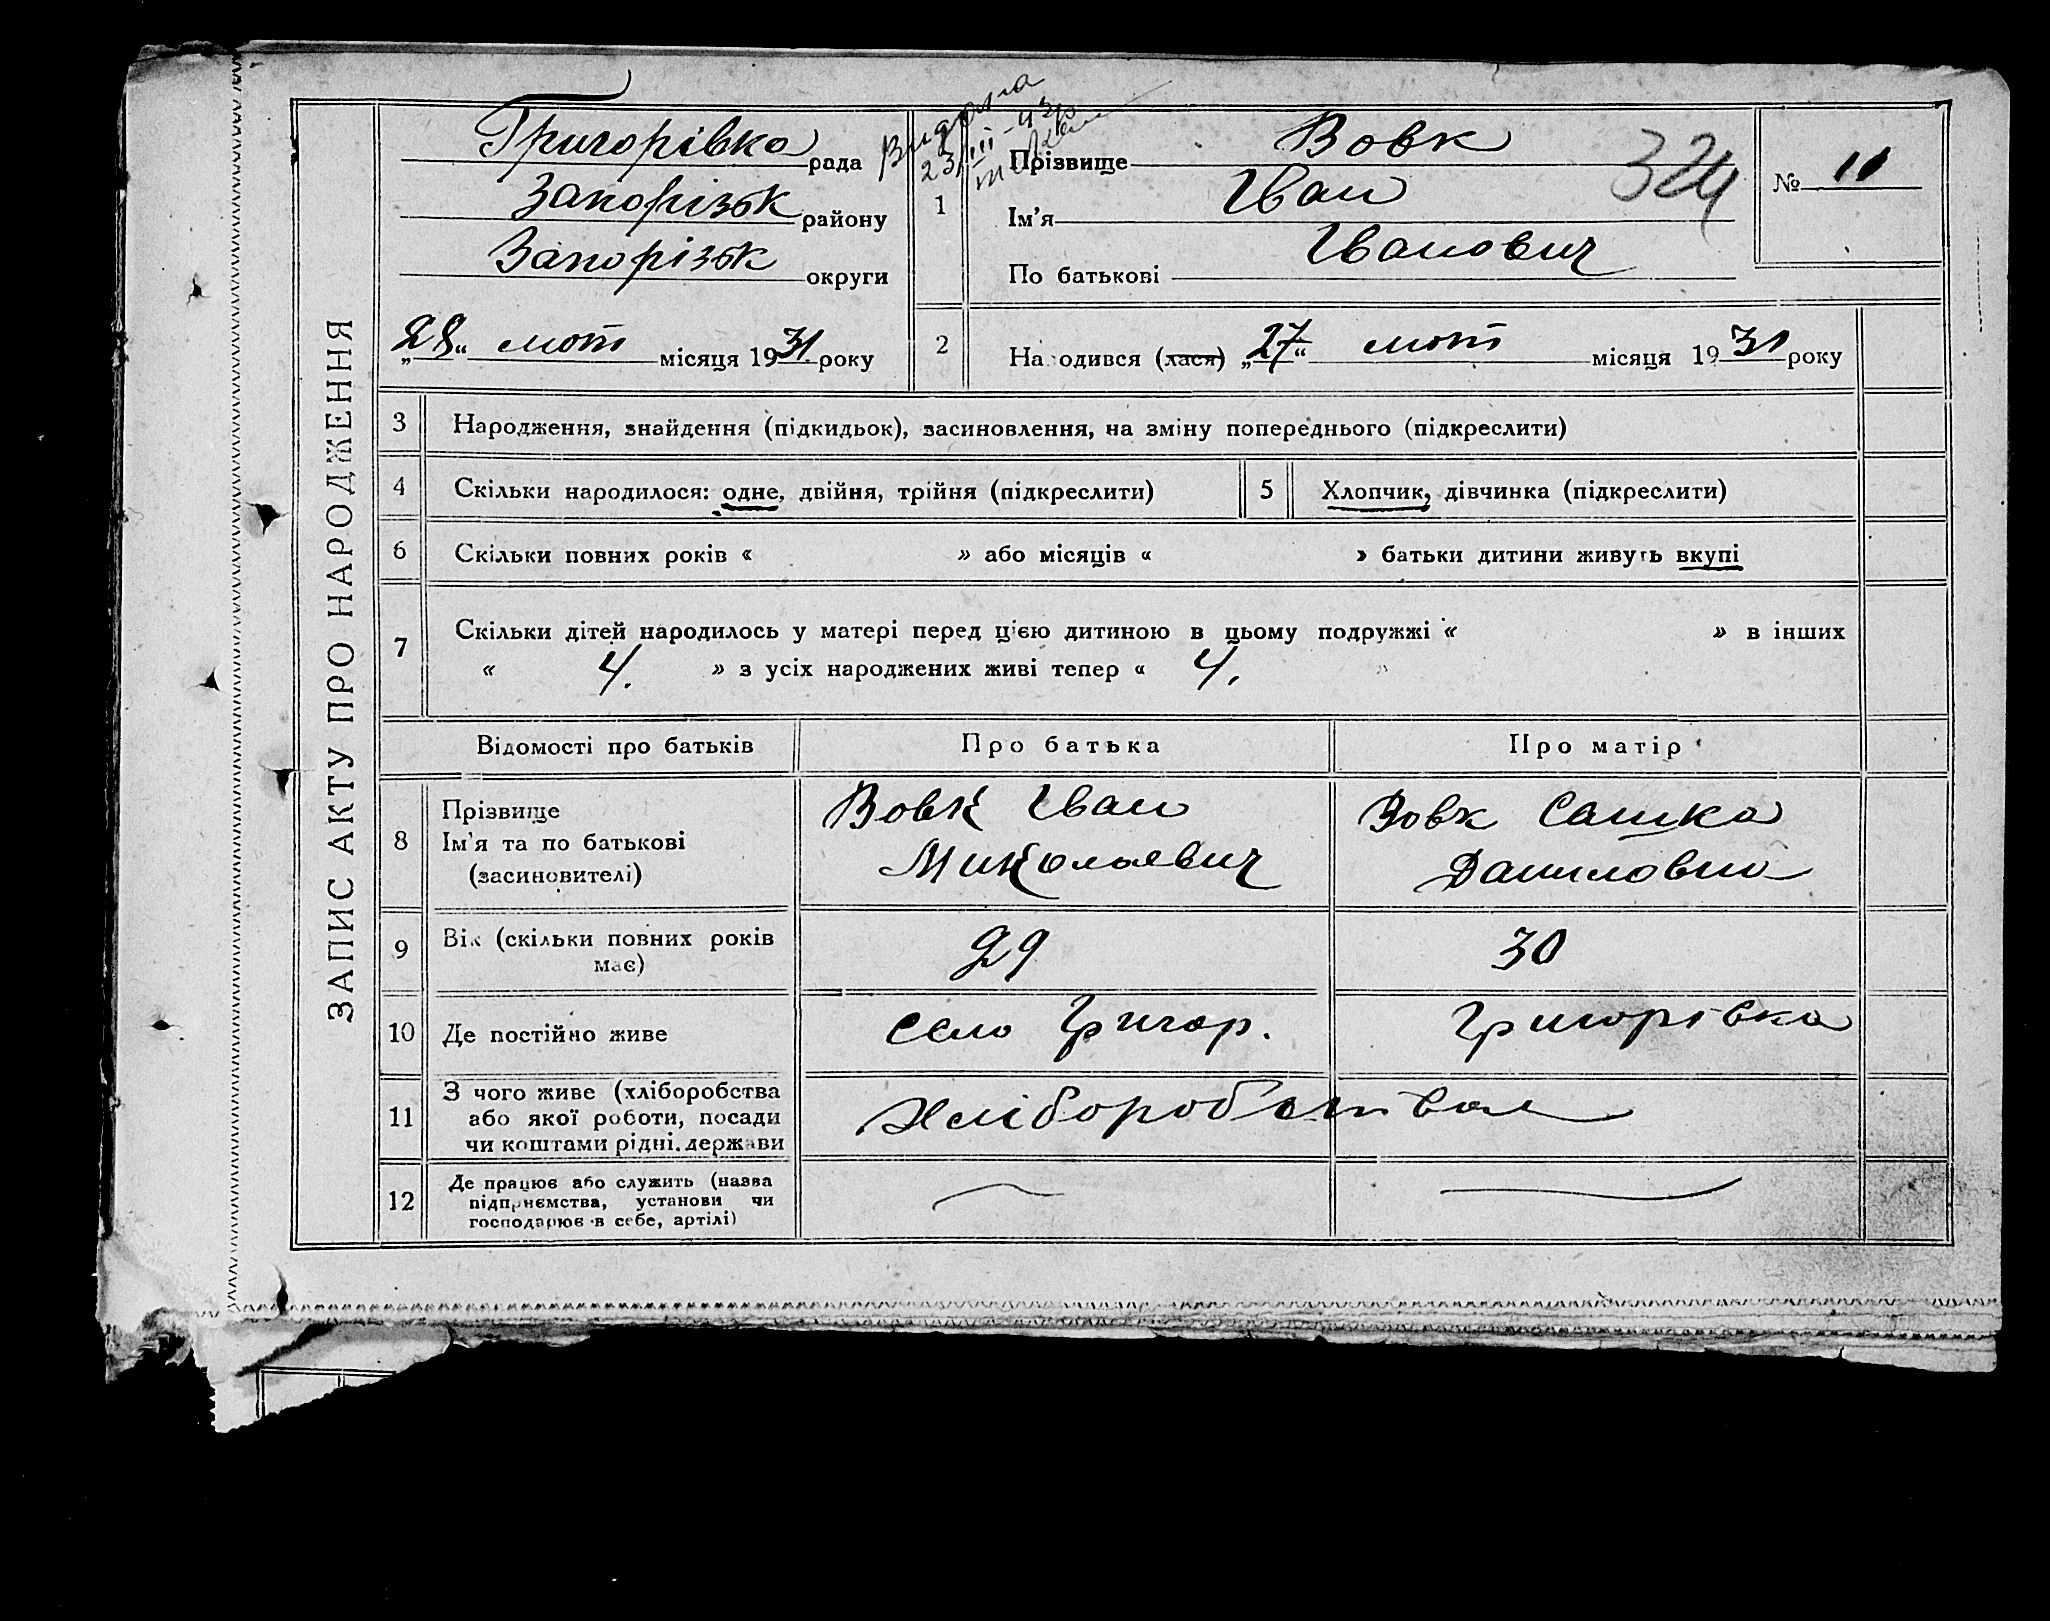 ЗАПИС АКТУ ПРО НАРОДЖЕННЯ
Григорівка рада
Запорізьк району
Запорізьк округи
„28“ лют місяця 1931 року
Видана
23/III-43р
1
Прізвище Вовк
Ім'я Іван
По батькові Іванович
324
№ 11
2 На одився (лася) „27“ лют місяця 1931 року
3 Народження, знайдення (підкидьок), засиновлення, на зміну попереднього (підкреслити)
4 Скільки народилося: одне, двійня, трійня (підкреслити)
5 Хлопчик, дівчинка (підкреслити)
6 Скільки повних років « » або місяців « » батьки дитини живуть вкупі
7 Скільки дітей народилось у матері перед цією дитиною в цьому подружжі « » в інших
« 4. » з усіх народжених живі тепер « 4. »
Відомості про батьків Про батька Про матір
8 Прізвище
Ім'я та по батькові
(засиновителі)
Вовк Іван
Миколаевич
Вовк Сашка
Даниловна
9 Вік (скільки повних років
має)
29 30
10 Де постійно живе село Григор. Григорівка
11 З чого живе (хліборобства
або якої роботи, посади
чи коштами рідні.держави
Хліборобством
12 Де працює або служить (назва
підприємства, установи чи
господарює в себе, артілі)